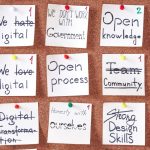 We hate
Digital
WE DON'T WORK
WITH
Government
Open
knowledge
We love
digital
Open
process
Team
Community
Digital
Transforma-
tion
Honesty with
ourselves
Strong
Design
Skills